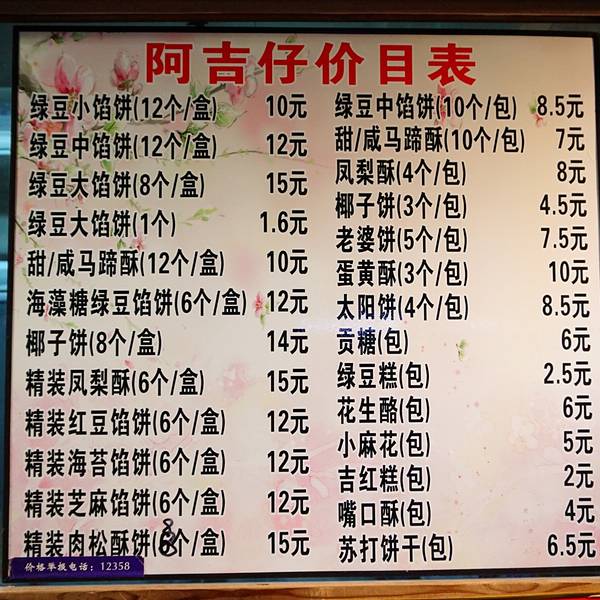 阿吉仔价目表
绿豆小馅饼(12个/盒) 10元
绿豆中馅饼(12个/盒) 12元
绿豆大馅饼(8个/盒) 15元
绿豆大馅饼(1个) 1.6元
甜/咸马蹄酥(12个/盒) 10元
海藻糖绿豆馅饼(6个/盒) 12元
椰子饼(8个/盒) 14元
精装凤梨酥(6个/盒) 15元
精装红豆馅饼(6个/盒) 12元
精装海苔馅饼(6个/盒) 12元
精装芝麻馅饼(6个/盒) 12元
精装肉松酥饼(6个/盒) 15元
价格举报电话：12358
绿豆中馅饼(10个/包) 8.5元
甜/咸马蹄酥(10个/包) 7元
凤梨酥(4个/包) 8元
椰子饼(3个/包) 4.5元
老婆饼(5个/包) 7.5元
蛋黄酥(3个/包) 10元
太阳饼(4个/包) 8.5元
贡糖(包) 6元
绿豆糕(包) 2.5元
花生酪(包) 6元
小麻花(包) 5元
吉红糕(包) 2元
嘴口酥(包) 4元
苏打饼干(包) 6.5元